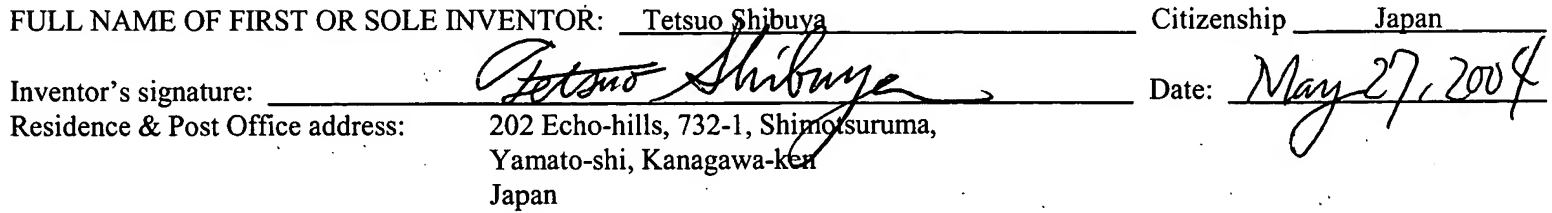 FULL NAME OF FIRST OR SOLE INVENTOR: Tetsuo Shibuya Citizenship Japan
Inventor's signature: Tetsuo Shibuya Date: May 27, 2004
Residence & Post Office address: 202 Echo-hills, 732-1, Shimotsuruma,
Yamato-shi, Kanagawa-ken
Japan